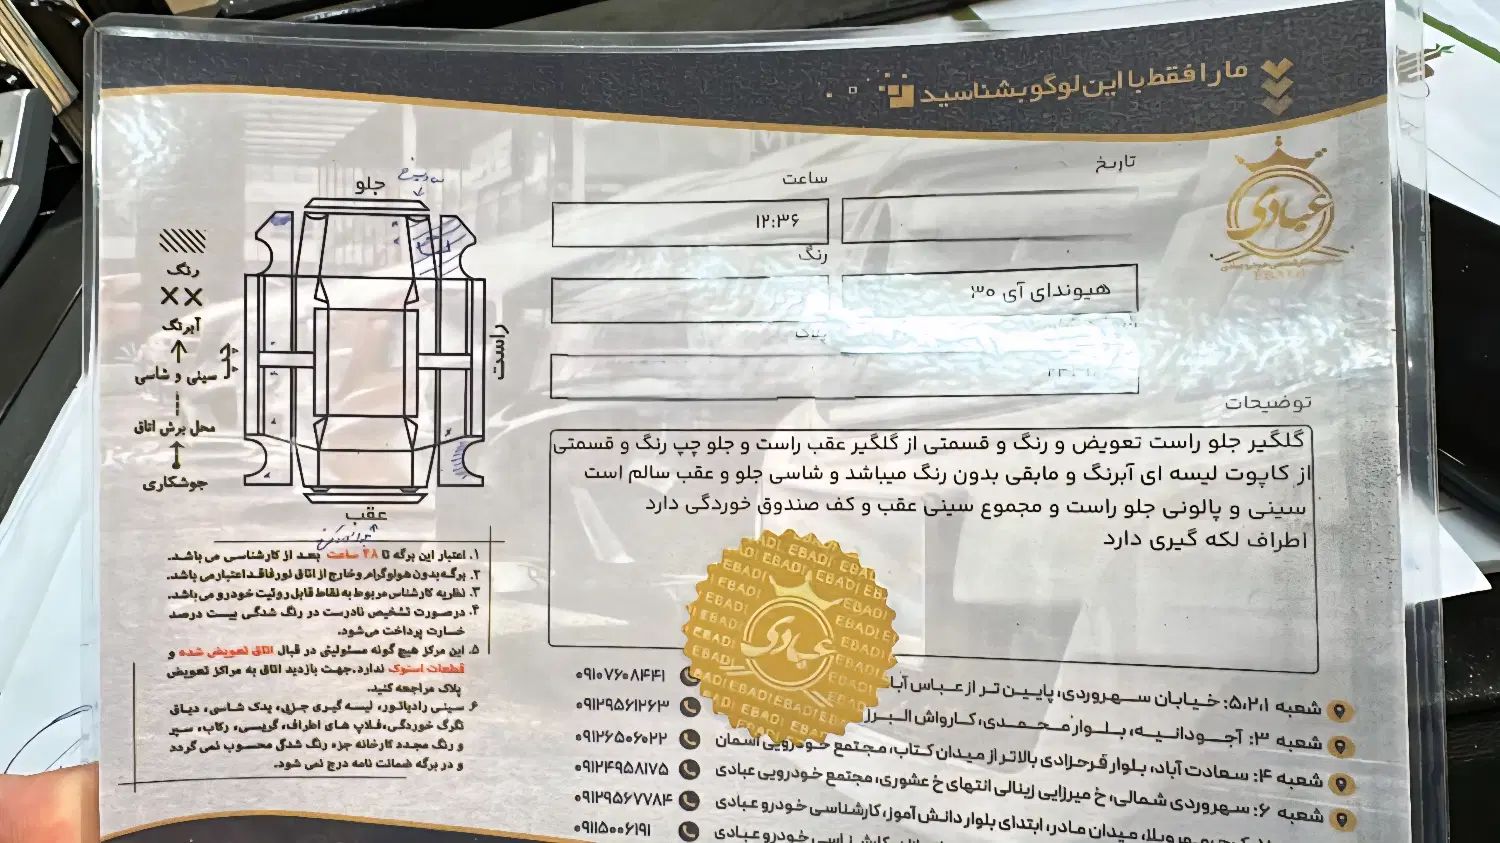 ما را فقط با این لوگو بشناسید
عبادی
EBADI
تاریخ
ساعت
۱۲:۳۶
رنگ
هیوندای آی ۳۰
پلاک
توضیحات
گلگیر جلو راست تعویض و رنگ و قسمتی از گلگیر عقب راست و جلو چپ رنگ و قسمتی
از کاپوت لیسه ای آبرنگ و مابقی بدون رنگ میباشد و شاسی جلو و عقب سالم است
سینی و پالونی جلو راست و مجموع سینی عقب و کف صندوق خوردگی دارد
اطراف لکه گیری دارد
جلو
راست
چپ
عقب
رنگ
آبرنگ
سینی و شاسی
محل برش اتاق
جوشکاری
۱. اعتبار این برگه تا ۴۸ ساعت بعد از کارشناسی می باشد.
۲. برگه بدون هولوگرام و خارج از اتاق نور فاقد اعتبار می باشد.
۳. نظریه کارشناس مربوط به نقاط قابل روئیت خودرو می‌باشد.
۴. در صورت تشخیص نادرست در رنگ شدگی بیست درصد
خسارت پرداخت می‌شود.
۵. این مرکز هیچ گونه مسئولیتی در قبال اتاق تعویض شده و
قطعات استوک ندارد. جهت بازدید اتاق به مراکز تعویض
پلاک مراجعه کنید.
۶. سینی رادیاتور، لیسه گیری جزیی، یدک شاسی، دیاق
تگرگ خوردگی، قلاب های اطراف، گریسی، رکاب، سپر
و رنگ مجدد کارخانه جزء رنگ شدگی محسوب نمی گردد
و در برگه ضمانت نامه درج نمی شود.
عبادی
EBADI
شعبه ۵،۲،۱: خیابان سهروردی، پایین تر از عباس آباد ۰۹۱۰۷۶۰۸۴۴۱
شعبه ۳: آجودانیه، بلوار محمدی، کارواش البرز ۰۹۱۲۹۵۶۱۲۶۳
شعبه ۴: سعادت آباد، بلوار فرحزادی بالاتر از میدان کتاب، مجتمع خودرویی آسمان ۰۹۱۲۶۵۰۶۰۲۲
شعبه ۶: سهروردی شمالی، خ میرزایی زینالی انتهای خ عشوری، مجتمع خودرویی عبادی ۰۹۱۲۴۹۵۸۱۷۵
میدان مادر، ابتدای بلوار دانش آموز، کارشناسی خودرو عبادی ۰۹۱۲۹۵۶۷۷۸۴
کارشناسی خودرو عبادی ۰۹۱۱۵۰۰۶۱۹۱